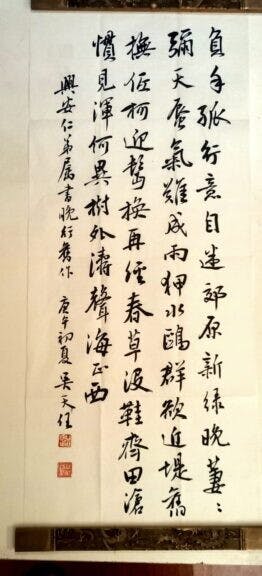 負手孤行意自迷郊原新綠晚萋〻
彌天蜃氣難成雨狎水鷗群欲近堤舊
撫低柯迎鬢換再經春草沒鞋齊田滄
慣見渾何異樹外濤聲海正西
興安仁弟屬書晚行舊作 庚午初夏 吳天任